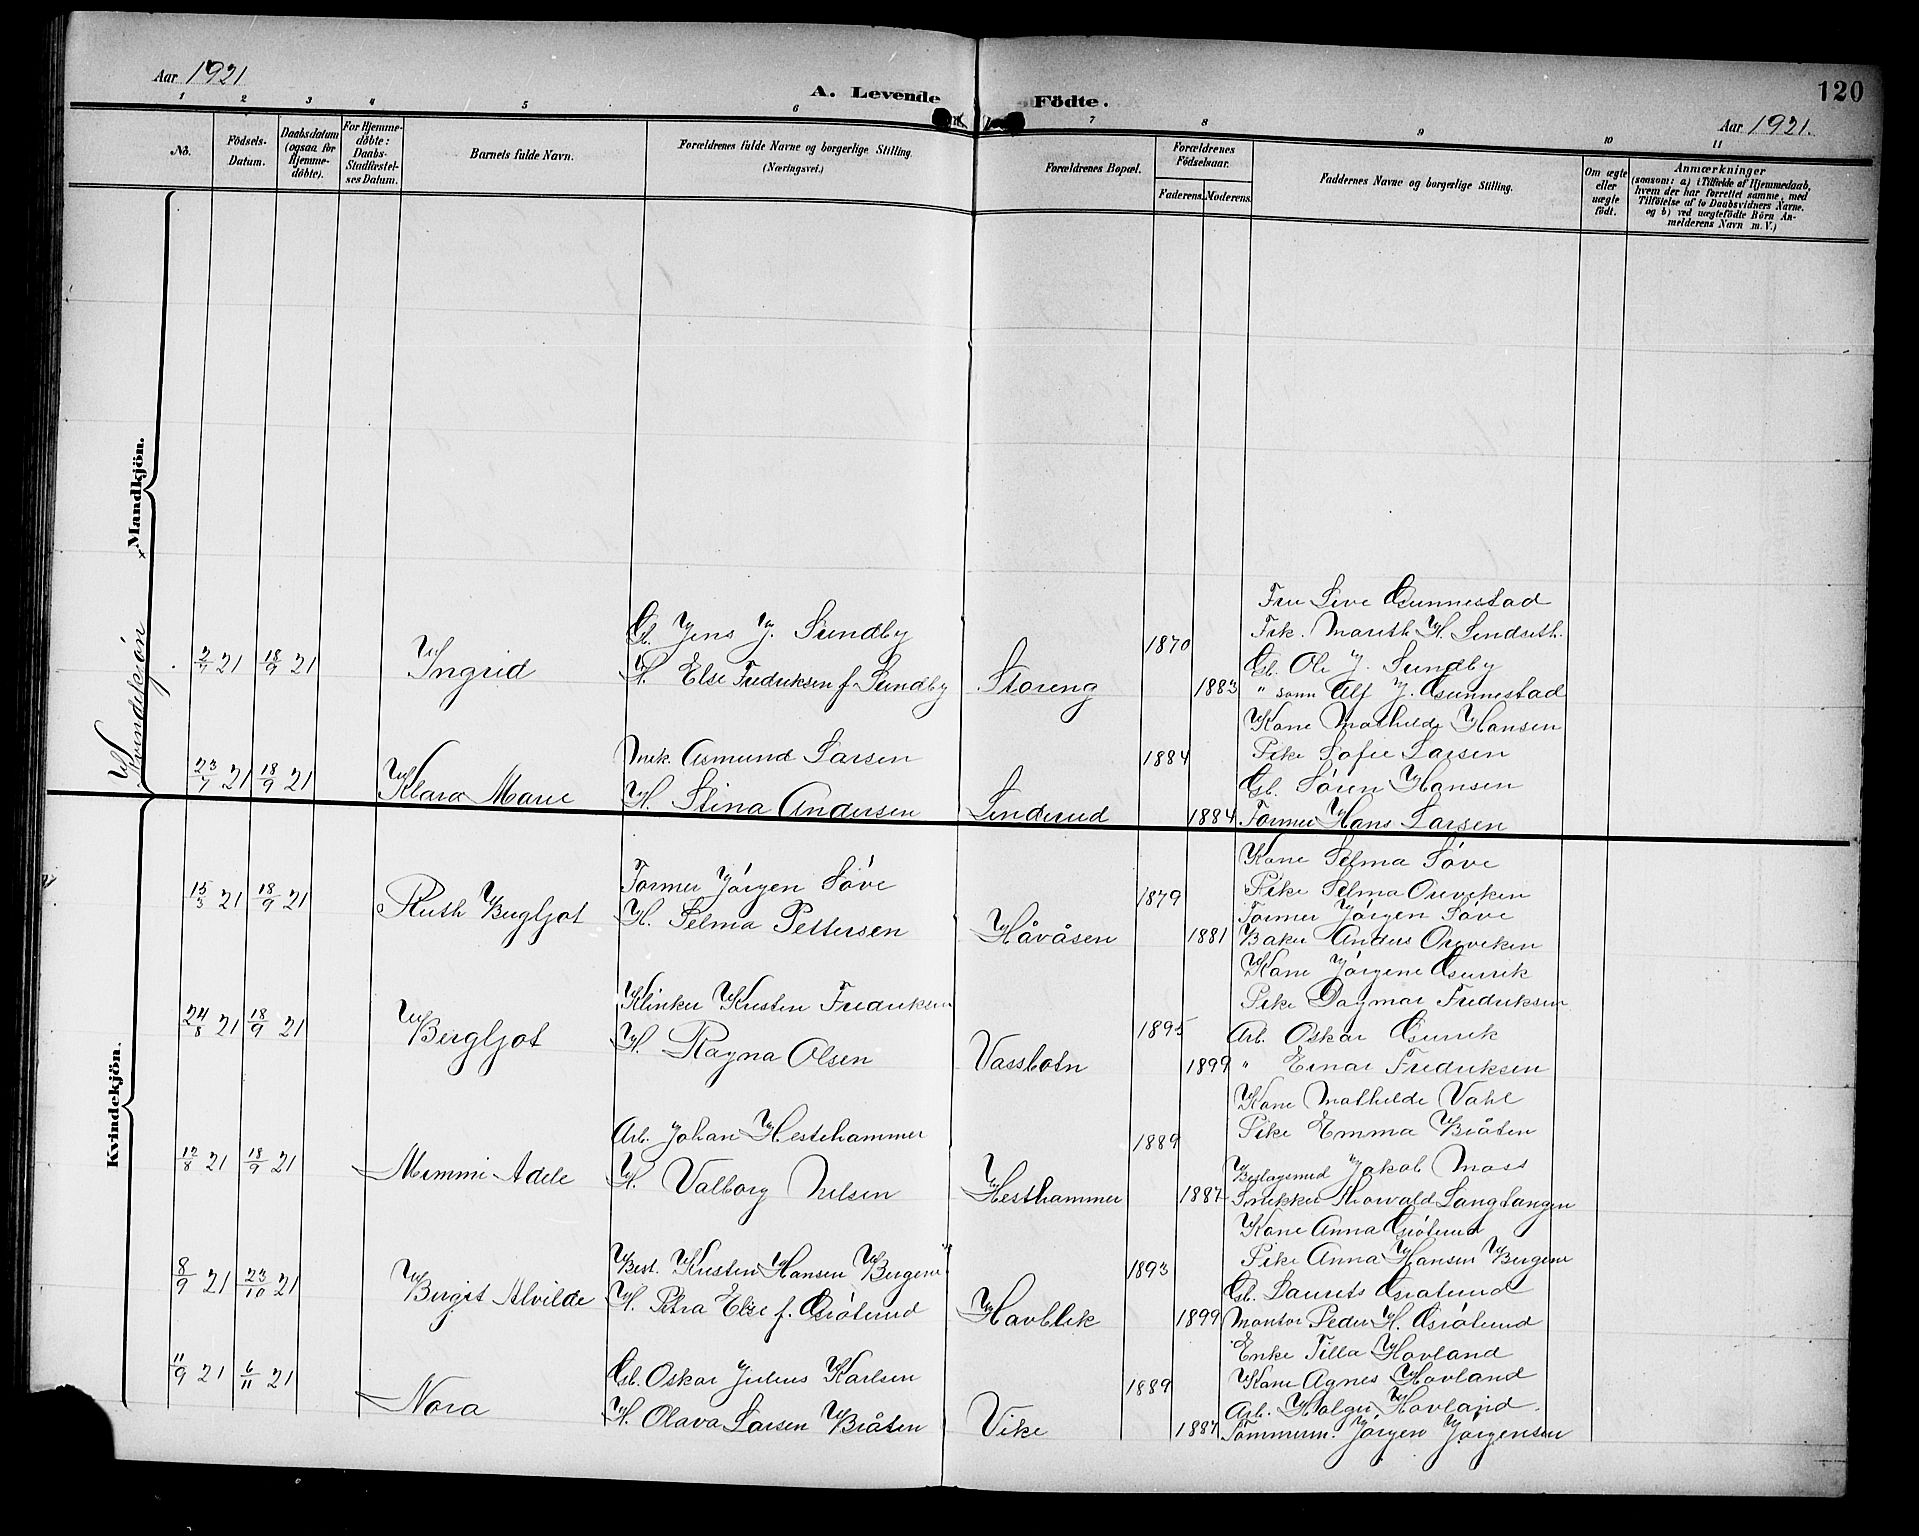 Aar 1921
A. Levende Födte.
120
Aar 1921.
1 2 3 4 5 6 7 8 9 10 11
No.
Födsels-
Datum.
Daabsdatum
(ogsaa for
Hjemme-
döbte).
For Hjemme-
döbte:
Daabs-
Stadfæstel-
ses Datum.
Barnets fulde Navn.
Forældrenes fulde Navne og borgerlige Stilling.
(Næringsvei.)
Forældrenes Bopæl.
Forældrenes
Födselsaar.
Faderens. Moderens.
Faddernes Navne og borgerlige Stilling.
Om ægte
eller
uægte
födt.
Anmærkninger
(saasom: a) i Tilfælde af Hjemmedaab,
hvem der har forrettet samme, med
Tilföielse af to Daabsvidners Navne.
og b) ved uægtefödte Börn An-
melderens Navn m. V.)
Mandkjön.
Kvindekjön
2/7 21 18/9 21 Ingrid
G. Jens J. Sundby
H. Else Fredriksen f. Sundby
Storeng 1870 1883
Fru Live Gunnestad
Frk. Mareth H. Lindseth.
Gb. Ole J. Sundby
" sønn Alf J. Gunnestad
23/7 21 18/9 21 Klara Marie
Mek. Asmund Larsen
H. Stina Andersen
Linderud 1884 1884
Kone Mathilde Hansen
Pike Sofie Larsen
Gb. Søren Hansen
Former Hans Larsen
Kvindekjön.
15/3 21 18/9 21 Ruth Bergljot
Former Jörgen Söve
H. Selma Pettersen
Håvåsen 1879 1881
Kone Selma Söve
Pike Selma Oreviken
Former Jörgen Söve
Baker Anders Oreviken
24/8 21 18/9 21 Bergljot
Klinker Kristen Fredriksen
H. Ragna Olsen
Vassbotn 1895 1899
Kone Jörgine Gurvik
Pike Dagmar Fredriksen
Arb. Oskar Gurvik
" Einar Fredriksen
12/8 21 18/9 21 Mimmi Adele
Arb. Johan Hestehammer
H. Valborg Nilsen
Hesthammer 1889 1887
Kone Mathilde Vahl
Pike Emma Bråten
Beslagsmed Jakob Moss
Snekker Thorvald Langtangen
8/9 21 23/10 21 Birgit Alvilde
Best. Kristen Hansen Bergene
H. Petra Else f. Grötsund
Havblik 1893 1899
Kone Anna Grötsund
Pike Anna Hansen Bergene
Gb. Laurits Grötsund
Montør Peder H. Grötsund
11/9 21 6/11 21 Nora
Gb. Oskar Julius Karlsen
H. Olava Larsen Bråten
Vike 1889 1887
Enke Tilla Hovland
Kone Agnes Hovland
Arb. Holger Hovland.
Tömmerm. Jörgen Jörgensen